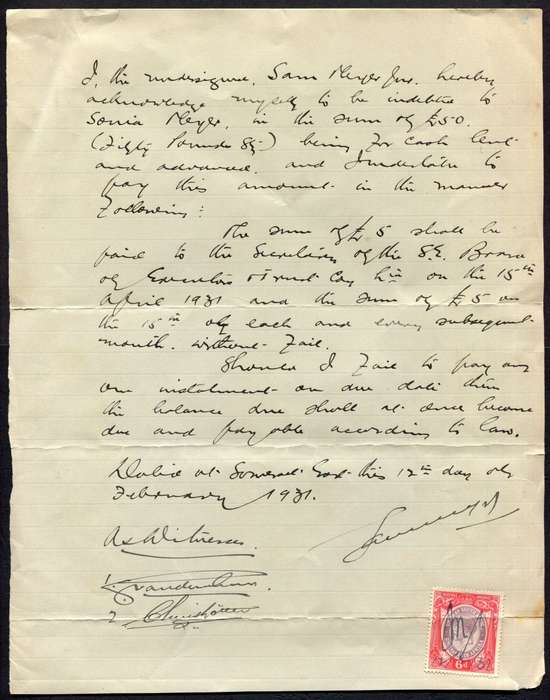 I, the undersigned, Sam Meyer Jnr. hereby
acknowledge myself to be indebted to
Sonia Meyer, in the sum of £50.
(Fifty Pounds Stg) being for cash lent
and advanced, and I undertake to
pay this amount in the manner
following:
The sum of £5 shall be
paid to the Secretary of the S.E. Board
of Executors & Trust Coy Ltd on the 15th
April 1931 and the sum of £5 on
the 15th of each and every subsequent
month, without fail.
Should I fail to pay any
one instalment on due date then
the balance due shall at once become
due and payable according to law.
Dated at Somerset East this 12th day of
February 1931.
As Witnesses.
2
6d